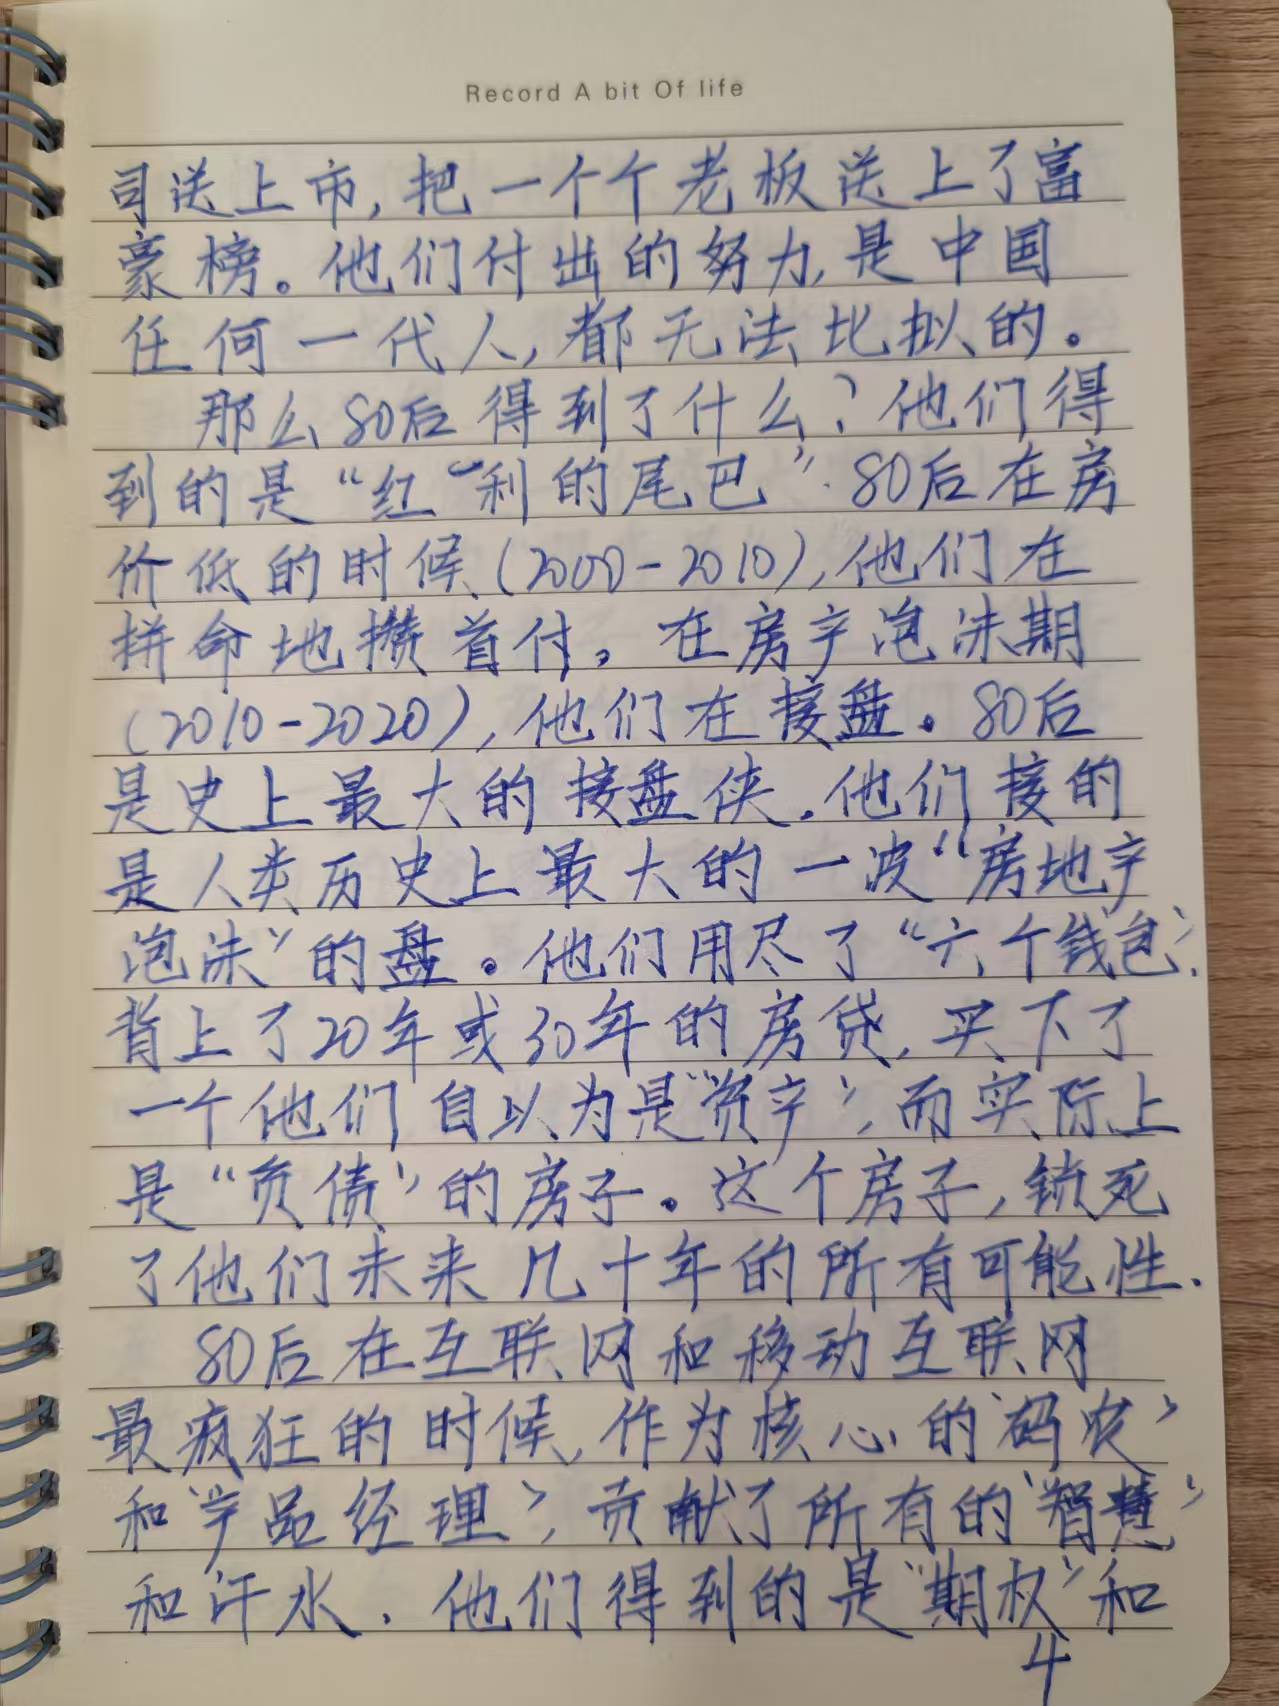 Record A bit Of life
司送上市,把一个个老板送上了富
豪榜。他们付出的努力,是中国
任何一代人,都无法比拟的。
那么80后得到了什么?他们得
到的是“红“利的尾巴”.80后在房
价低的时候(2000-2010),他们在
拼命地攒首付。在房产泡沫期
(2010-2020),他们在接盘。80后
是史上最大的接盘侠.他们接的
是人类历史上最大的一波“房地产
泡沫”的盘。他们用尽了“六个钱包”.
背上了20年或30年的房贷,买下了
一个他们自以为是“资产”,而实际上
是“负债”的房子。这个房子,锁死
了他们未来几十年的所有可能性.
80后在互联网和移动互联网
最疯狂的时候,作为核心的“码农”
和“产品经理”,贡献了所有的“智慧”
和汗水.他们得到的是“期权”和
4